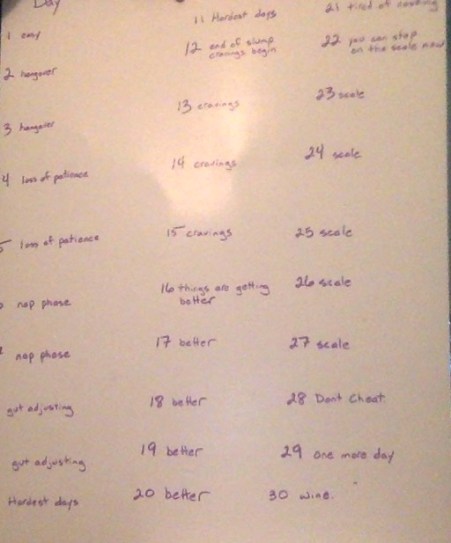 Day
1 easy
2 hangover
3 hangover
4 loss of patience
5 loss of patience
nap phase
nap phase
gut adjusting
gut adjusting
Hardest days
11 Hardest days
12 end of slump
cravings begin
13 cravings
14 cravings
15 cravings
16 things are getting
better
17 better
18 better
19 better
20 better
21 tired of
22 you can step
on the scale now
23 scale
24 scale
25 scale
26 scale
27 scale
28 Dont Cheat
29 one more day
30 wine.